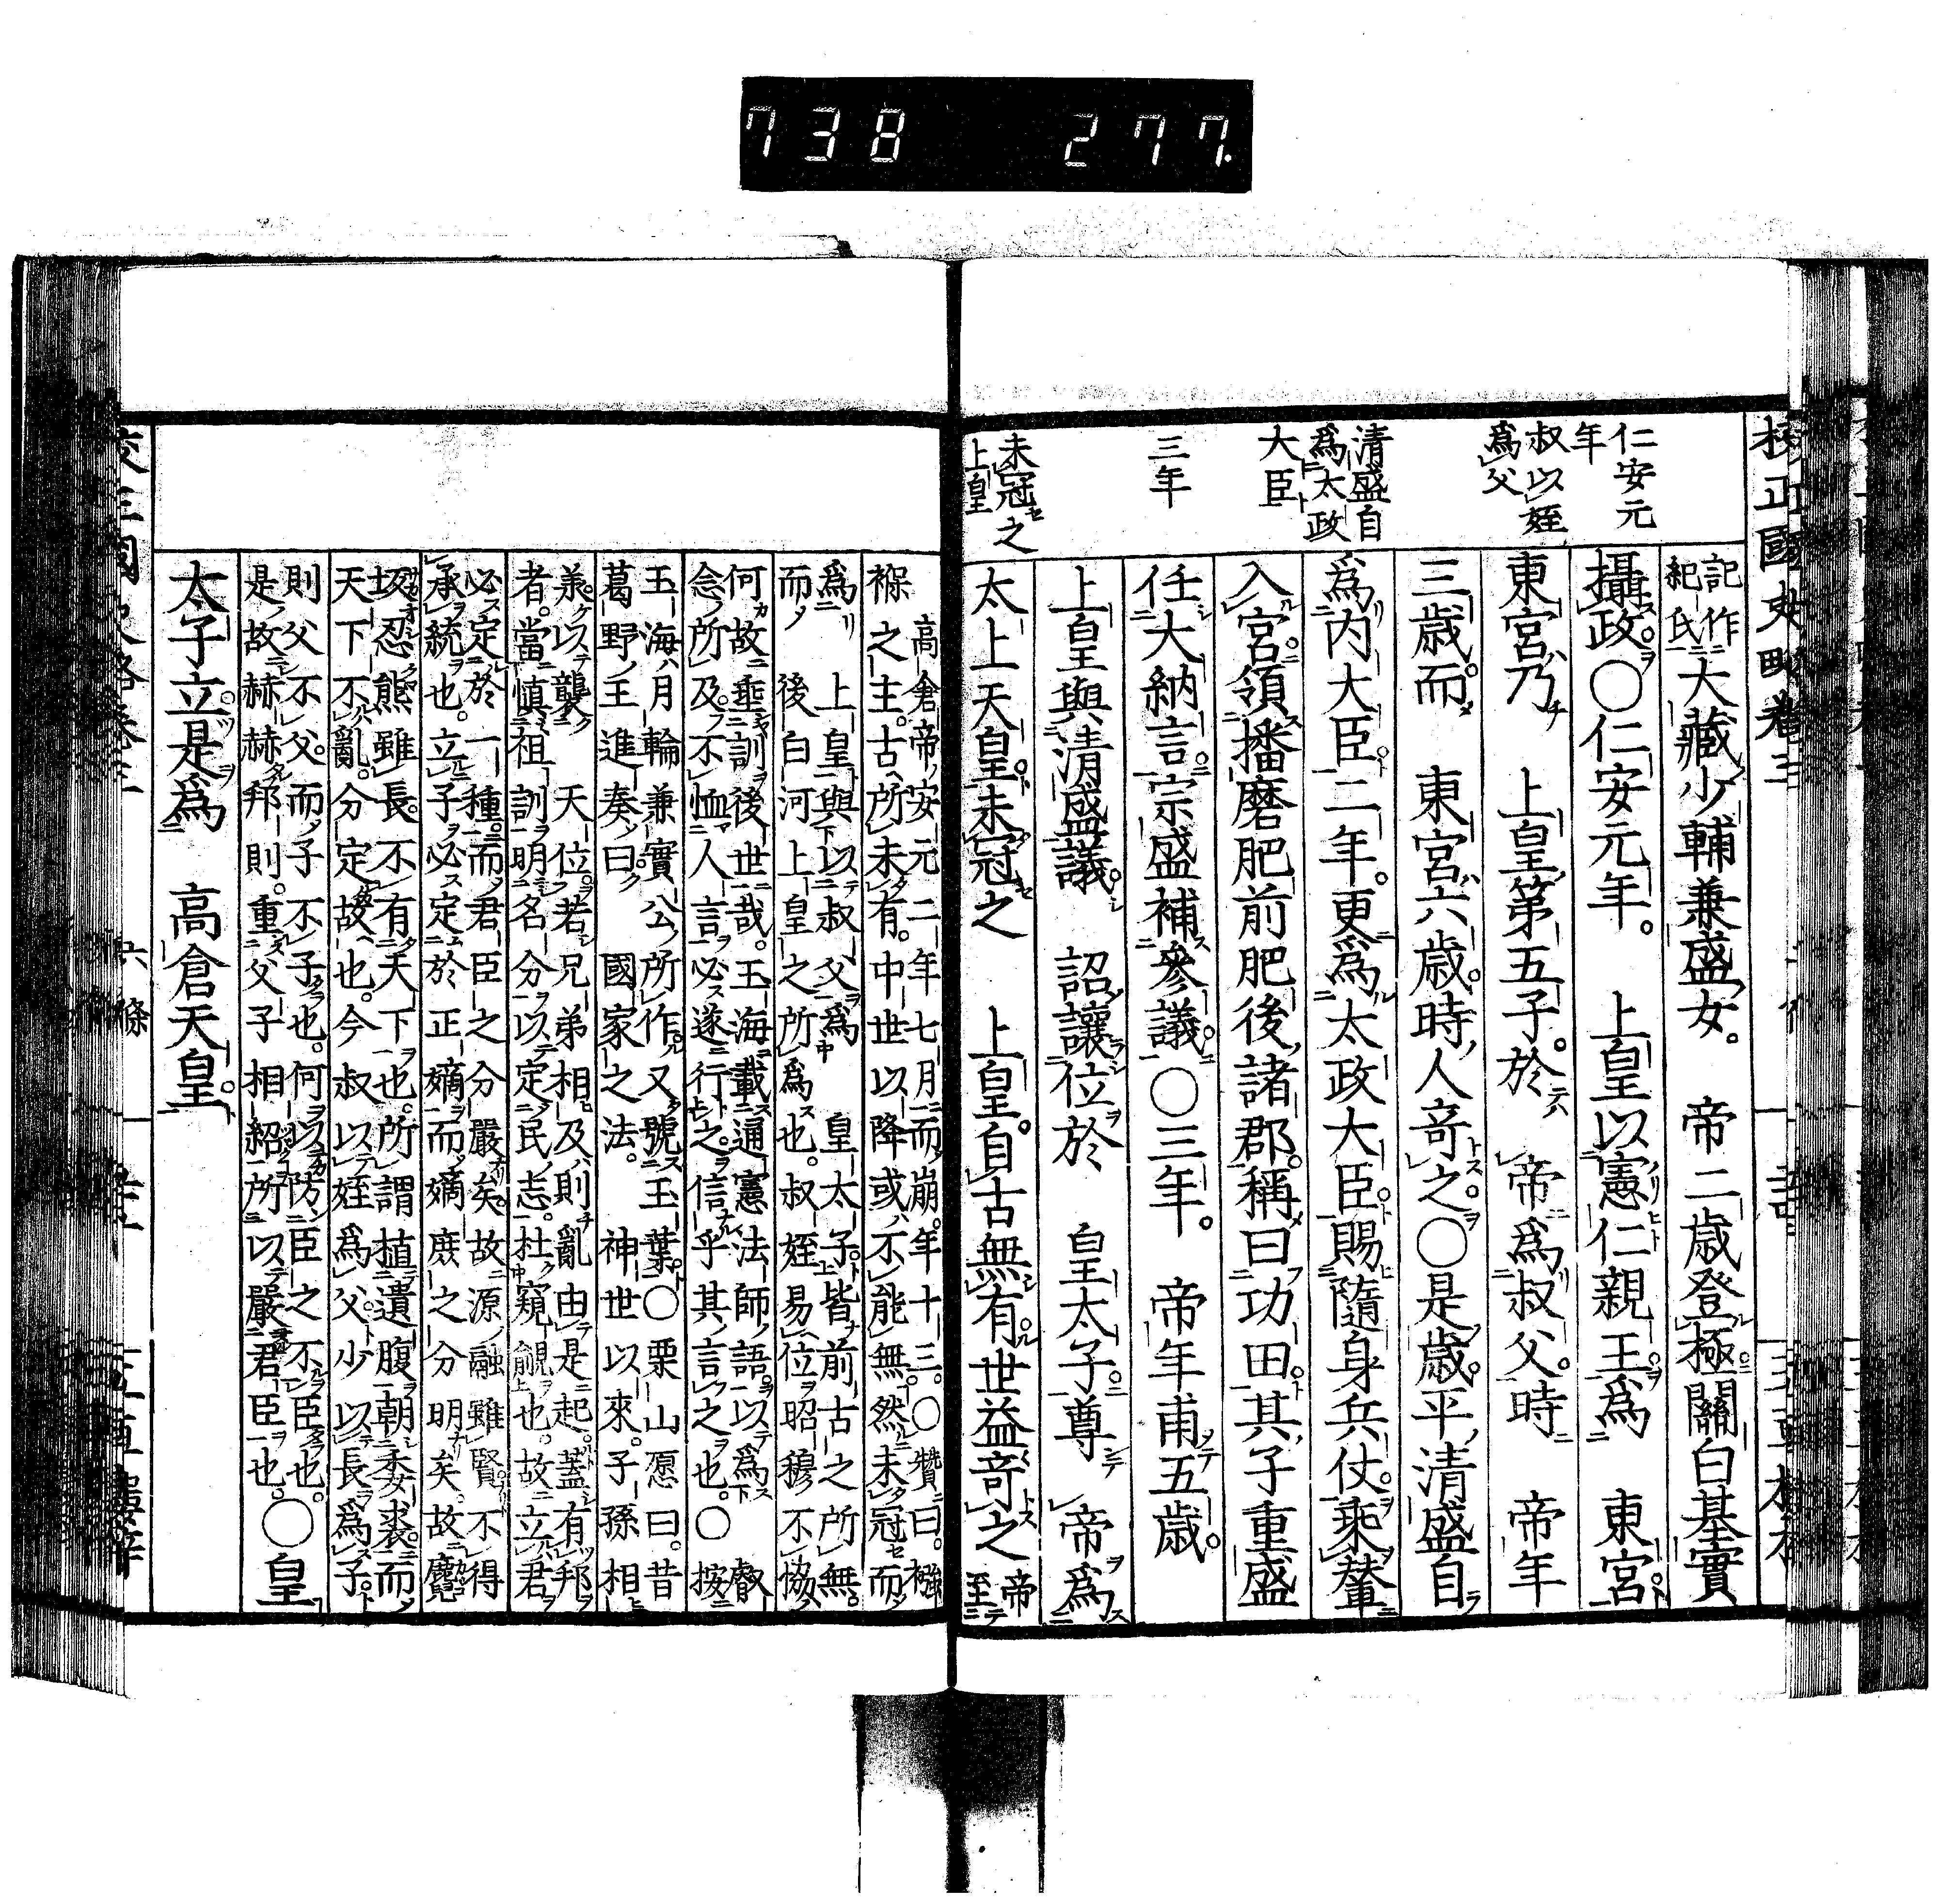 738 277.
校正國史略卷三
仁安元
年
叔以姪
爲父
清盛自
爲太政
大臣
三年
未冠之
上皇
記作
紀氏
大藏少輔兼盛女。 帝二歳登極關白基實
攝政。〇仁安元年。 上皇以憲仁親王爲 東宮
東宮乃 上皇第五子。於 帝爲叔父。時 帝年
三歳而 東宮六歳。時人竒之〇是歳平清盛自
爲内大臣。二年。更爲太政大臣。賜隨身兵仗。乘輦
入宮。領播磨肥前肥後諸郡。稱曰功田。其子重盛
任大納言。宗盛補參議。〇三年。 帝年甫五歳。
上皇與清盛議。 詔讓位於 皇太子。尊 帝爲
太上天皇。未冠之 上皇。自古無有。世益竒之
帝
至
高倉帝安元二年七月而崩。年十三。〇贊曰。襁
褓之主。古所未有。中世以降或不能無。然未冠而
爲 上皇與以叔父爲 皇太子。皆前古之所無。
而 後白河上皇之所爲也。叔姪易位昭穆不恊
何故垂訓後世哉。玉海載通憲法師語以爲 叡
念所及。不恤人言必遂行之。信乎其言之也。〇按
玉海月輪兼實公所作又號玉葉。〇栗山愿曰。昔
葛野王進奏曰 國家之法。 神世以來。子孫相
兼以襲 天位若兄弟相及則亂由是起。蓋有邦
者。當愼祖訓明名分以定民志。杜窺覦也。故立君
必定於一種。而君臣之分嚴矣。故源融雖賢不得
承統也。立子必定於正嫡而嫡庶之分明矣。故麛
坂忍熊雖長。不有天下也。所謂植遺腹朝委裘。而
天下不亂。分定故也。今叔以姪爲父。少以長爲子。
則父不父。而子不子也。何以防臣之不臣也。
是故赫赫邦則。重父子相紹所以嚴君臣也。〇皇
太子立。是爲 高倉天皇。